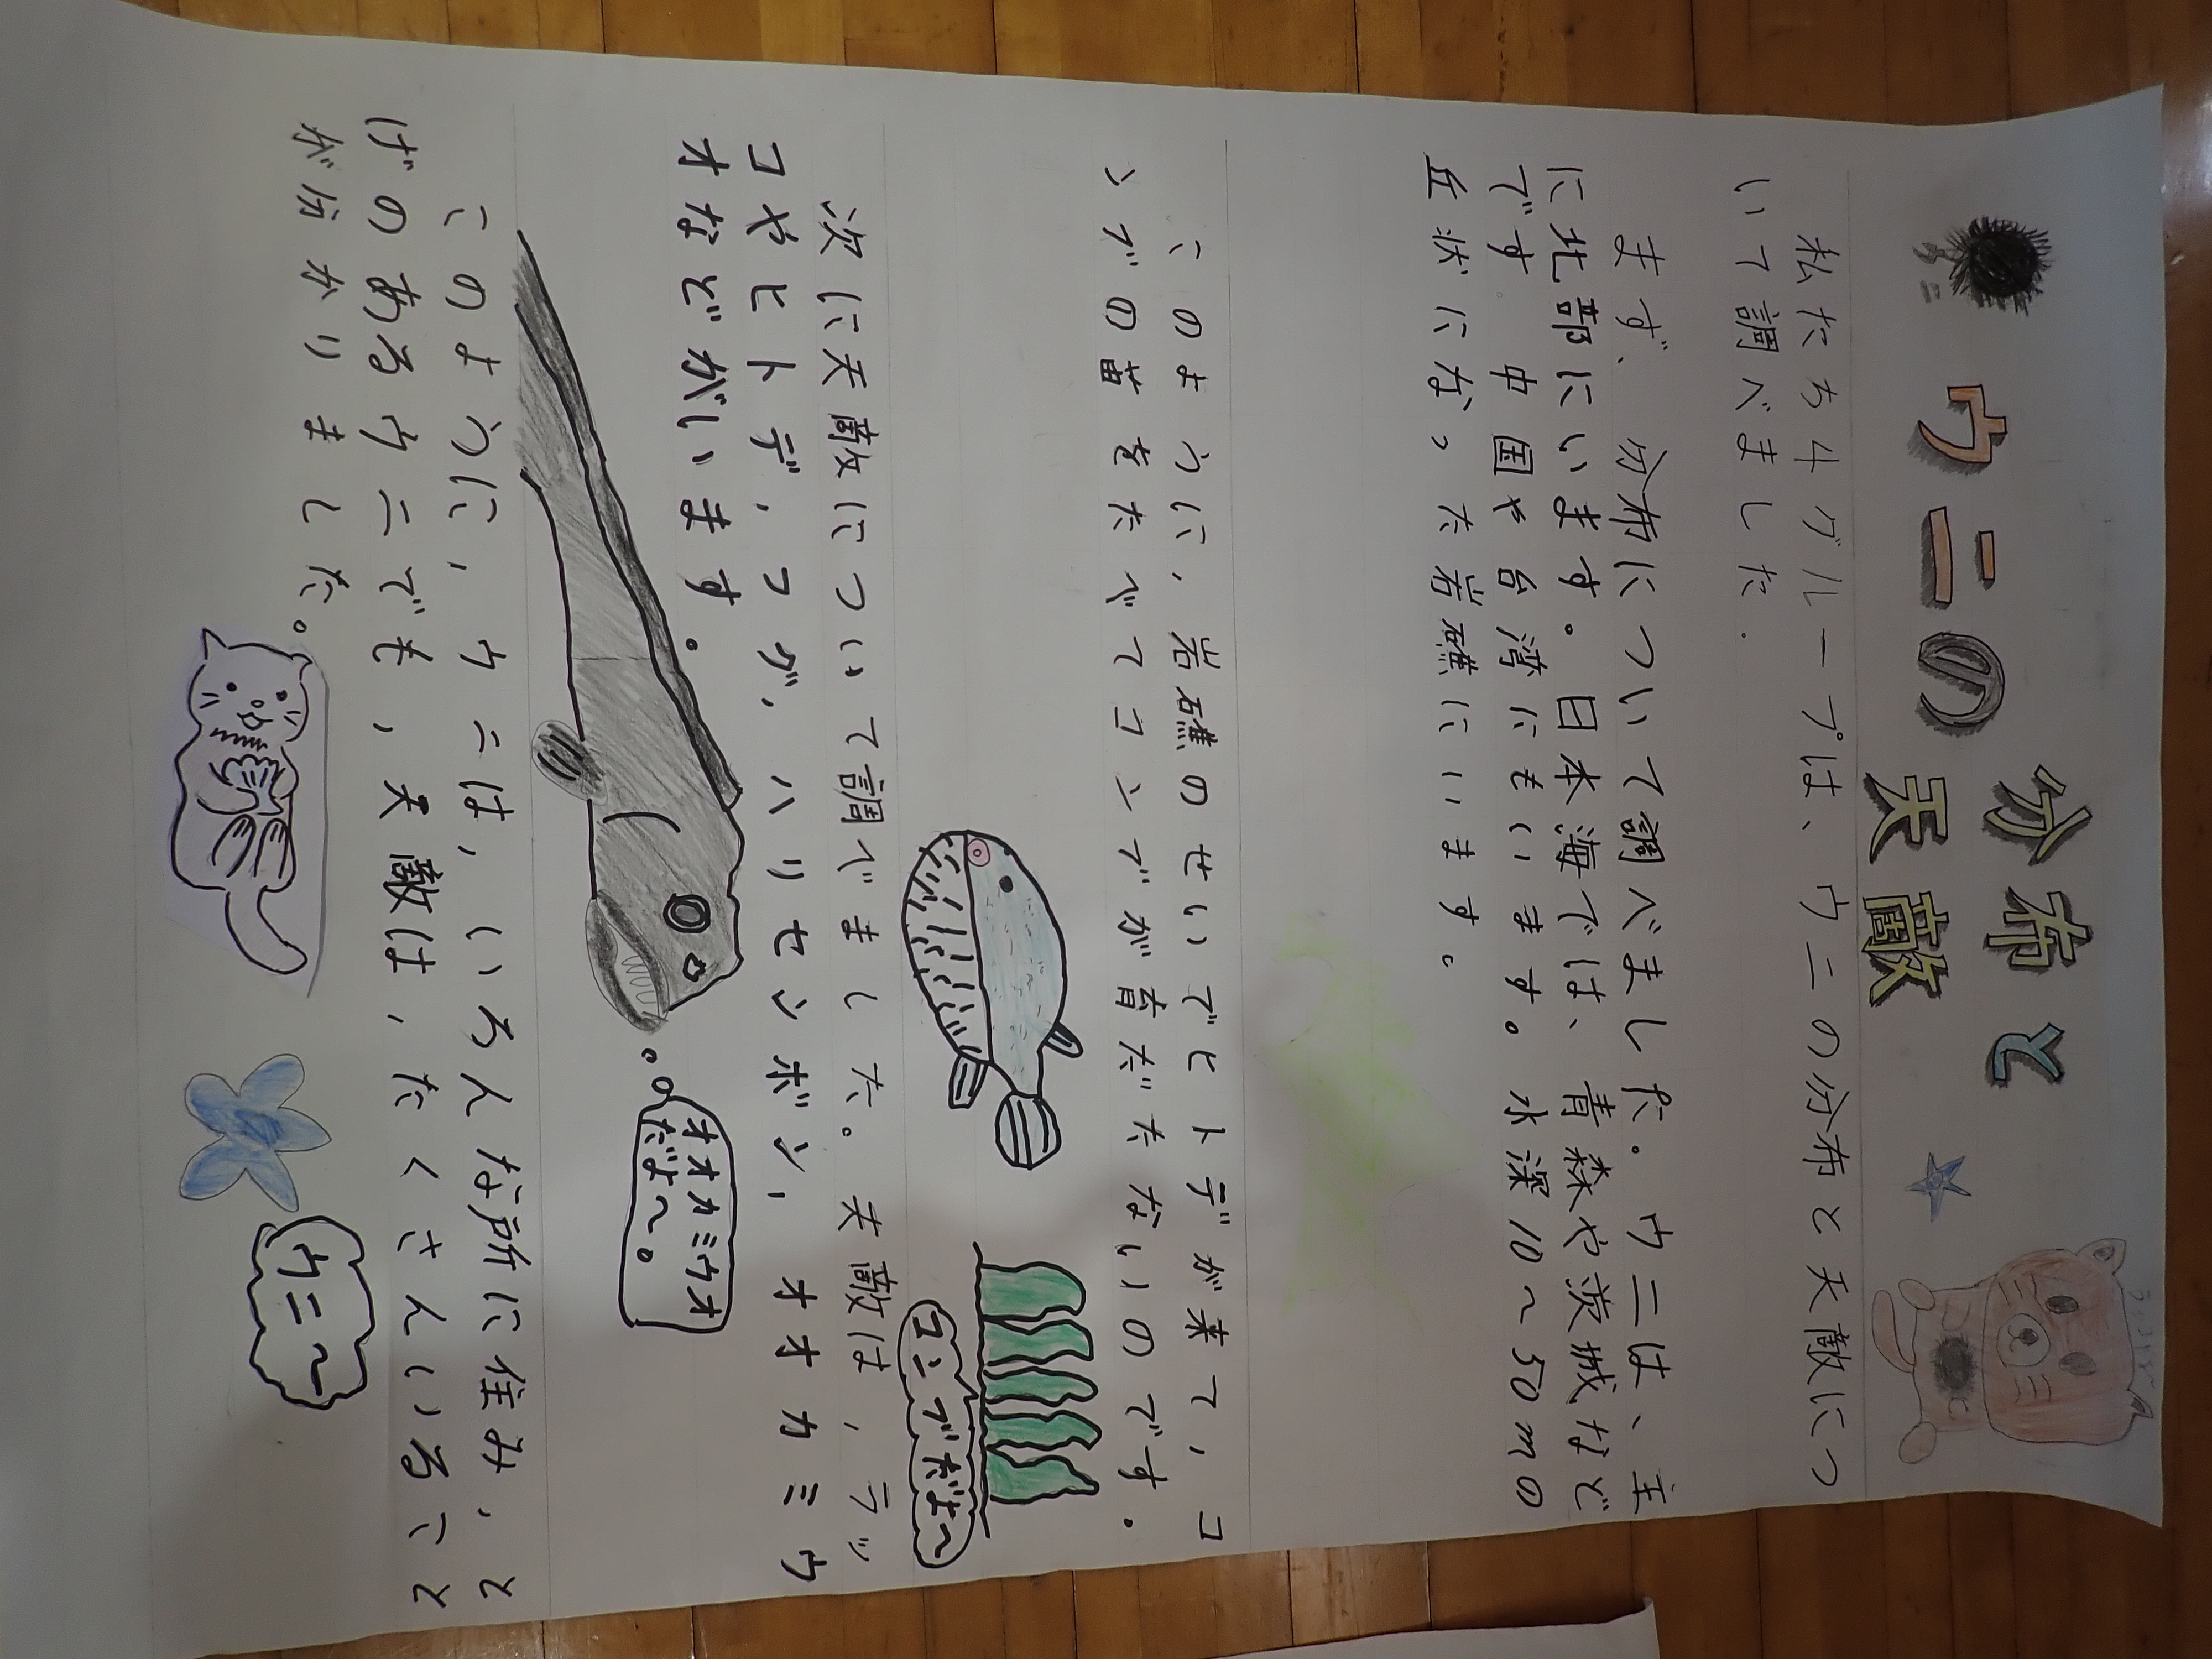 ウニの分布と天敵
ウニ
私たち4グループは、ウニの分布と天敵につ
いて調べました.
まず、分布について調べました。ウニは、主
に北部にいます。日本海では、青森や茨城など
です.中国や台湾にもいます。水深10〜50mの
丘状になった岩礁にいます。
このように,岩礁のせいでヒトデが来て,コ
ンブの苗をたべてコンブが育だだないのです.
コンブだよ〜
次に天敵について調べました。天敵は,ラッ
コやヒトデ,フグ,ハリセンボン,オオカミウ
オなどがいます。
オオカミウオ
だよ〜。
このように,ウニは,いろんな所に住み,と
げのあるウニでも,天敵は,たくさんいること
が分かりました。
ウニ〜